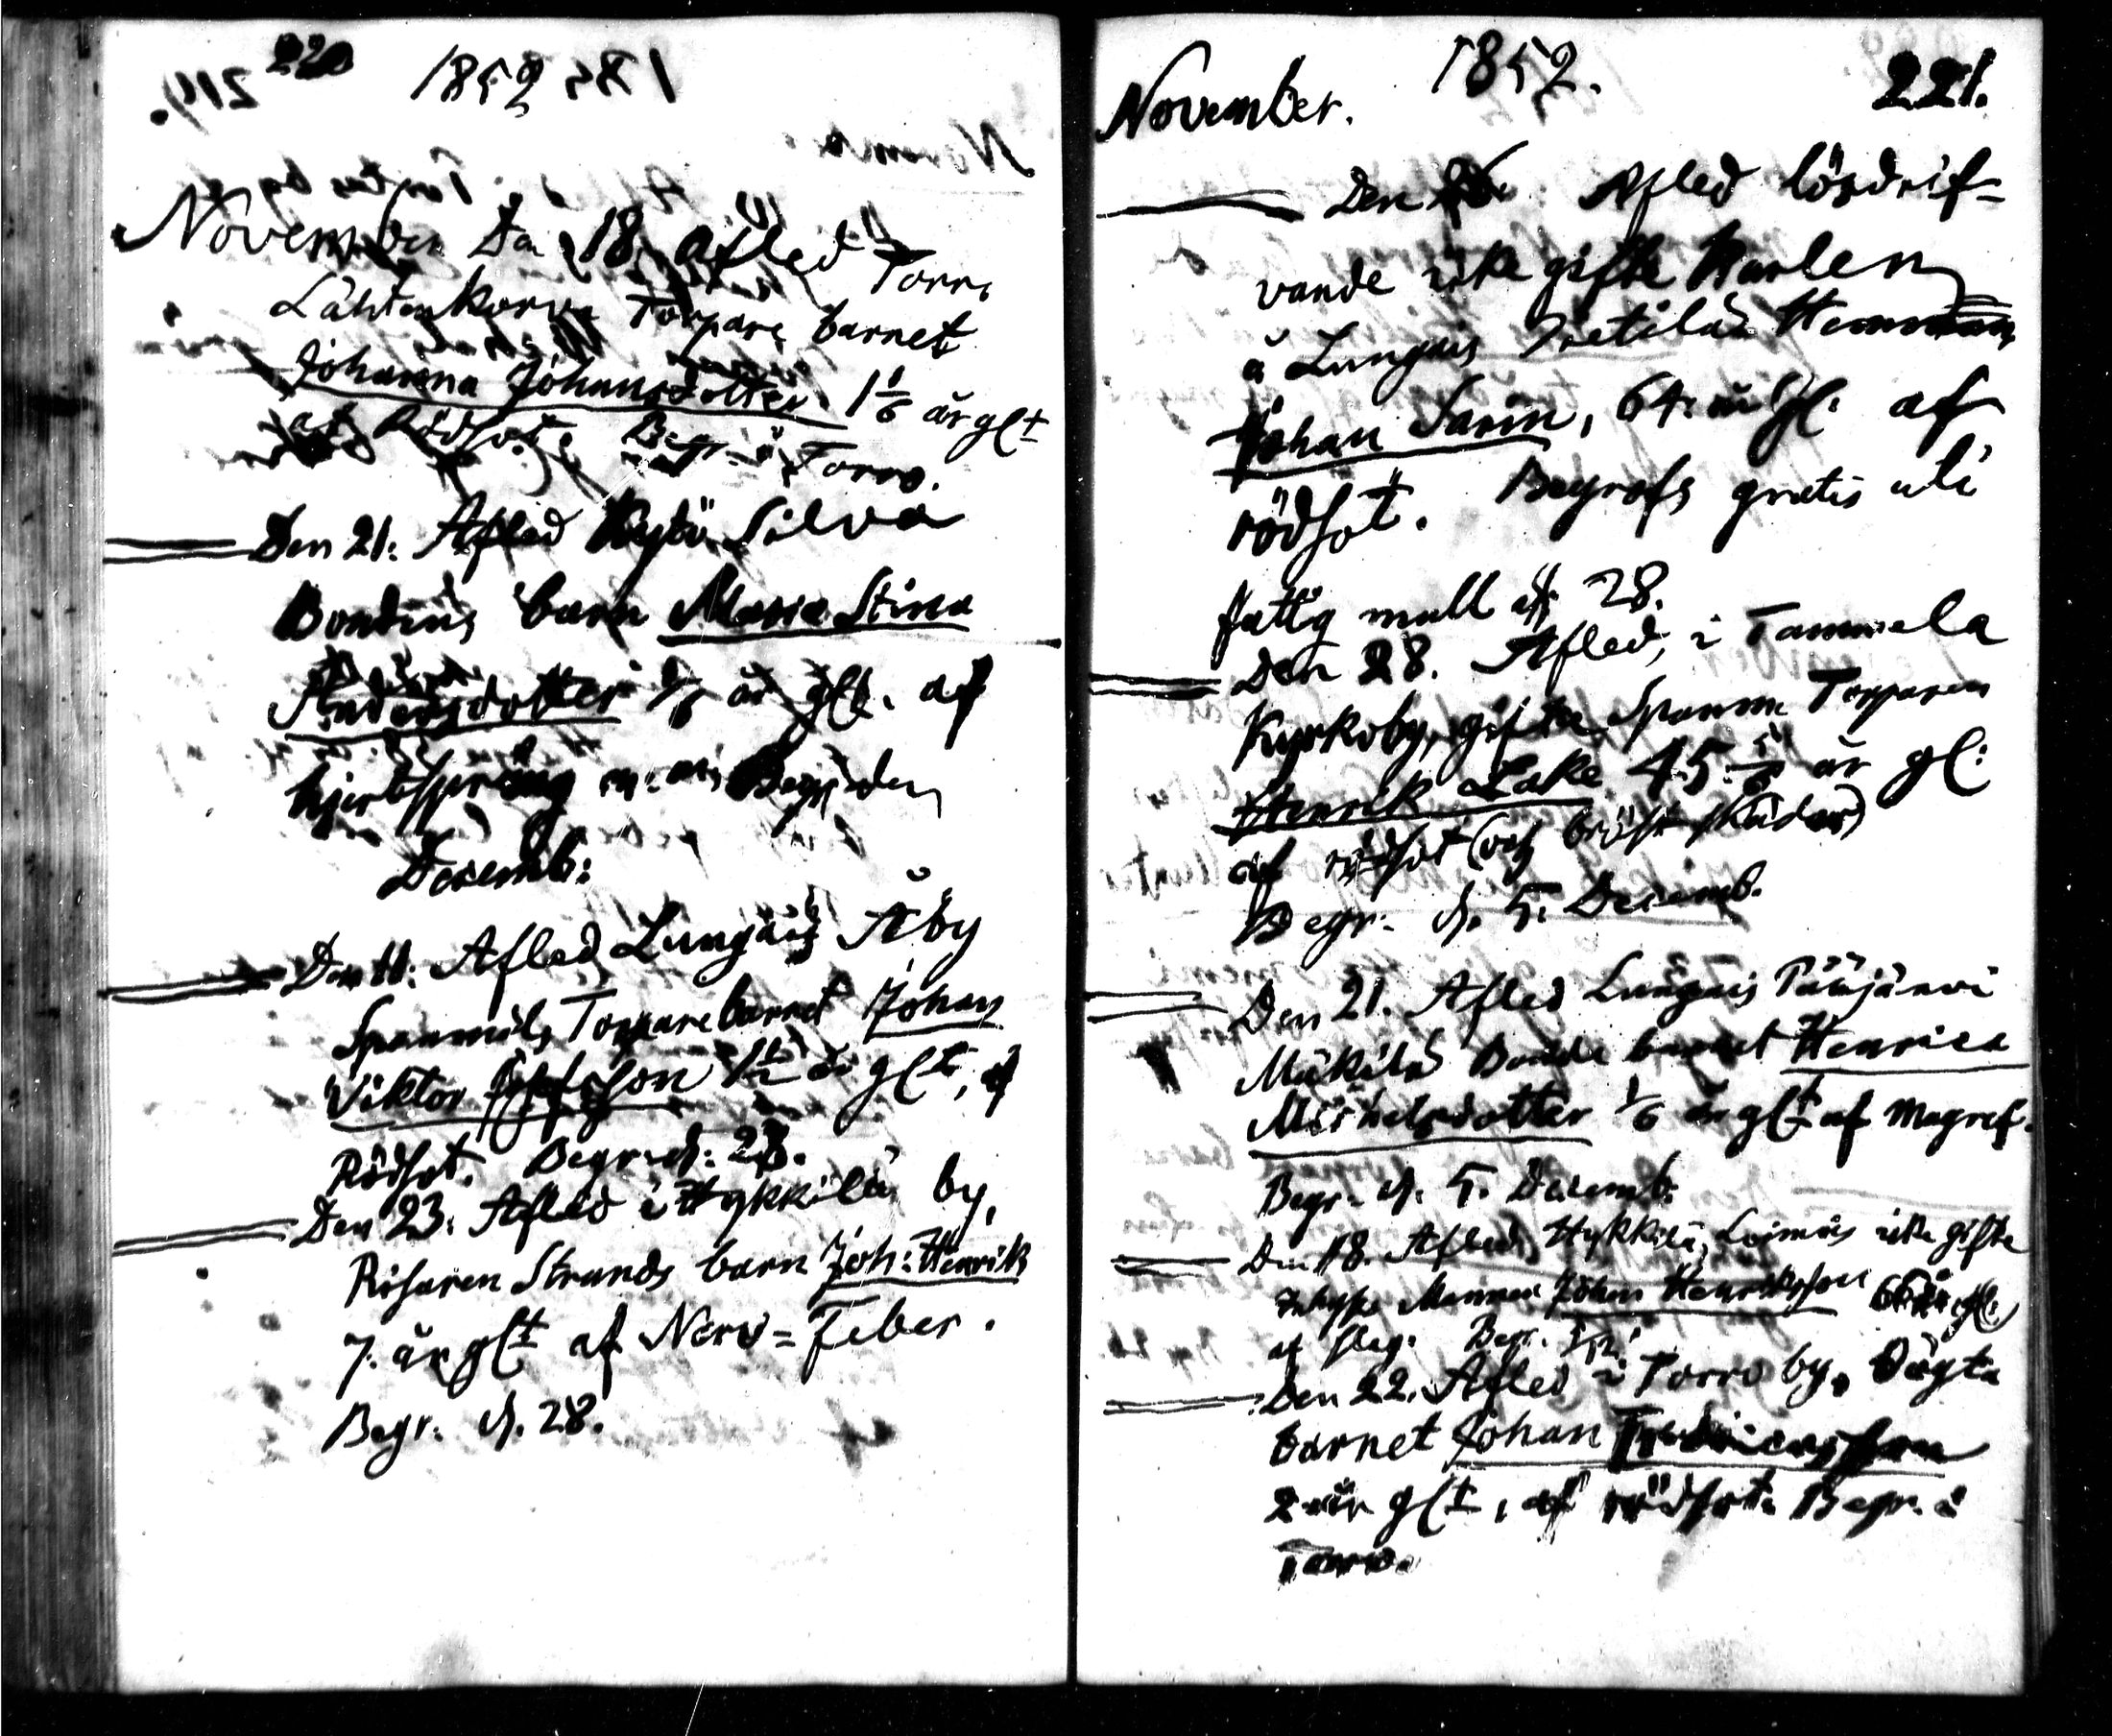 220
1852
November Den 18 afled Torro
Lähtenkorva Torpare barnet
Johanna Johansdotter 1 1/6 år glt
af Rödsot. Begr. i Torro.
Den 21. Afled Kytö Silva
Bondens barn Maria Stina
Andersdotter 1/6 år glt. af
hjertsprång Begr. den
Decemb:
Den 11: Afled Lungois Åby
Spannmåls Torpare barnet Johan
Viktor 1/2 år glt, af
Rödsot. Begr. d. 28.
Den 23. Afled i Hykkilä by,
Risaren Strands barn Joh: Henrik
7. år glt af Nerv=Feber.
Begr. d. 28.
1852.
November. 221.
Den Afled lösdrif=
vande icke gifte Karlen
å Lungois Prietilä Hemman
Johan Sarin, 64. år gl. af
rödsot. Begrofs gratis uti
fattig mull d. 28.
Den 28. Afled, i Tammela
Kyrkoby, gifte Spanm Torparen
Henrik Lake 45 5/6 år gl:
af rödsot (och bröst skador)
Begr. d. 5. Decemb.
Den 21. Afled Lungois Pääjärvi
Mäkilä Bonde barnet Henrica
Michelsdotter 1/6 år glt af Magref.
Begr. d. 5. Decemb.
Den 18. Afled, Hykkilä, Loimois icke gifte
Inhyses Mannen Johan Henriksson 66 år gl:
af slag. Begr. 5/12.
Den 22. Afled i Torro by, Vågts
barnet Johan Fredricsson
2 år glt, af rödsot. Begr. i
Torro.